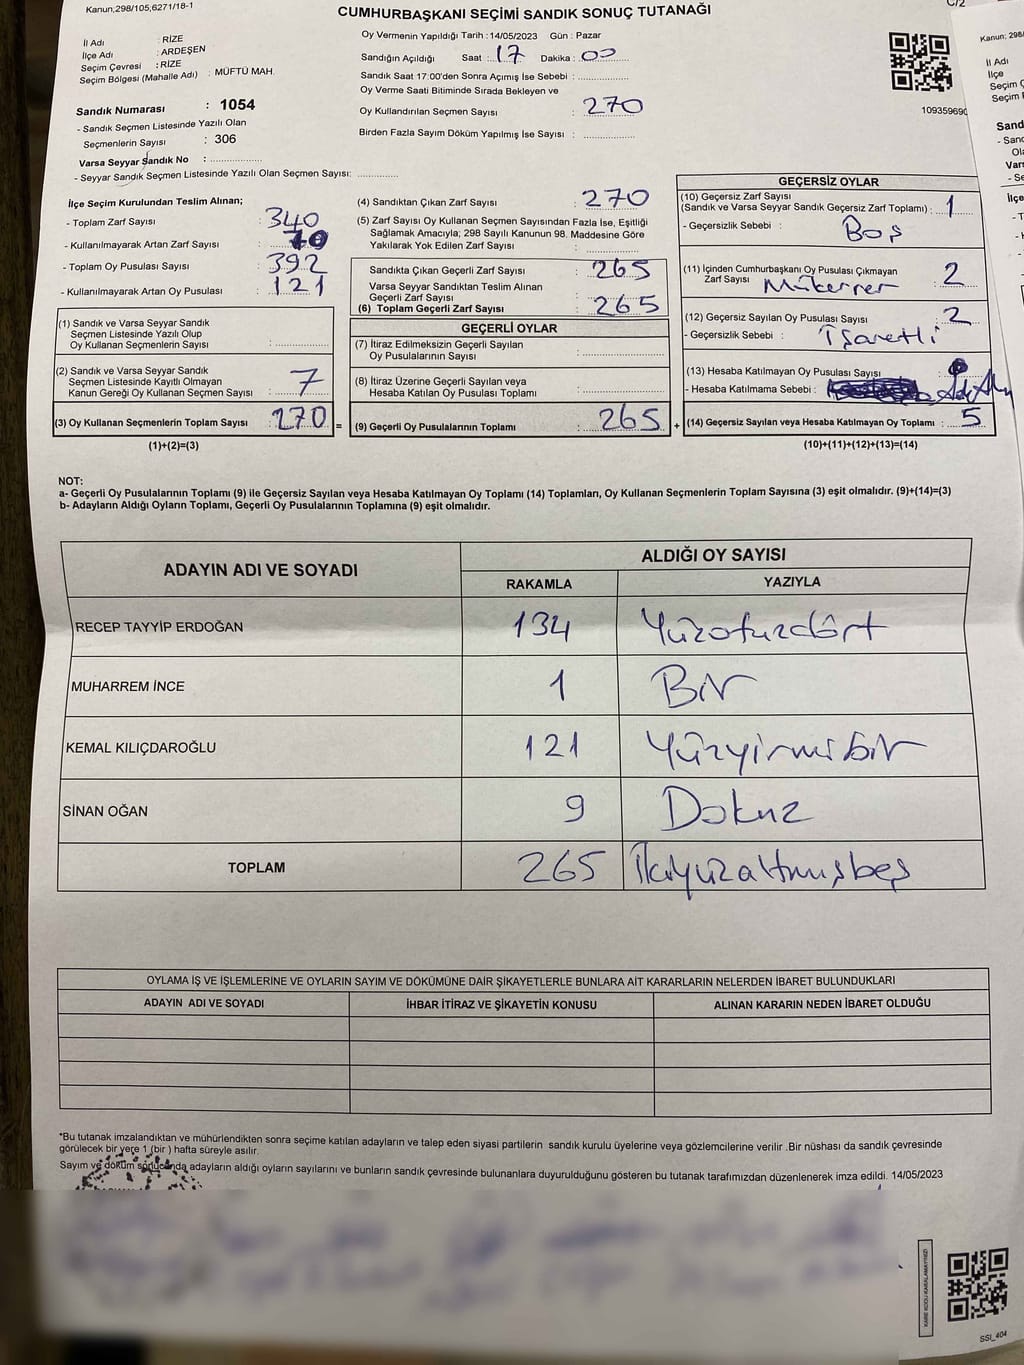 Kanun,298/105,6271/18-1
C/2
CUMHURBAŞKANI SEÇİMİ SANDIK SONUÇ TUTANAĞI
İl Adı : RİZE
İlçe Adı : ARDEŞEN
Seçim Çevresi : RİZE
Seçim Bölgesi (Mahalle Adı) : MÜFTÜ MAH.
Sandık Numarası : 1054
- Sandık Seçmen Listesinde Yazılı Olan
Seçmenlerin Sayısı : 306
Varsa Seyyar Sandık No :
- Seyyar Sandık Seçmen Listesinde Yazılı Olan Seçmen Sayısı:
Oy Vermenin Yapıldığı Tarih : 14/05/2023 Gün : Pazar
Sandığın Açıldığı Saat : 17 Dakika : 00
Sandık Saat 17:00'den Sonra Açımış İse Sebebi :
Oy Verme Saati Bitiminde Sırada Bekleyen ve
Oy Kullandırılan Seçmen Sayısı : 270
Birden Fazla Sayım Döküm Yapılmış İse Sayısı :
109359690
İlçe Seçim Kurulundan Teslim Alınan;
- Toplam Zarf Sayısı : 340
- Kullanılmayarak Artan Zarf Sayısı : 70
- Toplam Oy Pusulası Sayısı : 392
- Kullanılmayarak Artan Oy Pusulası : 121
(1) Sandık ve Varsa Seyyar Sandık
Seçmen Listesinde Yazılı Olup
Oy Kullanan Seçmenlerin Sayısı :
(2) Sandık ve Varsa Seyyar Sandık
Seçmen Listesinde Kayıtlı Olmayan
Kanun Gereği Oy Kullanan Seçmen Sayısı : 7
(3) Oy Kullanan Seçmenlerin Toplam Sayısı : 270 =
(1)+(2)=(3)
(4) Sandıktan Çıkan Zarf Sayısı : 270
(5) Zarf Sayısı Oy Kullanan Seçmen Sayısından Fazla İse, Eşitliği
Sağlamak Amacıyla; 298 Sayılı Kanunun 98. Maddesine Göre
Yakılarak Yok Edilen Zarf Sayısı :
Sandıkta Çıkan Geçerli Zarf Sayısı : 265
Varsa Seyyar Sandıktan Teslim Alınan
Geçerli Zarf Sayısı :
(6) Toplam Geçerli Zarf Sayısı : 265
GEÇERLİ OYLAR
(7) İtiraz Edilmeksizin Geçerli Sayılan
Oy Pusulalarının Sayısı :
(8) İtiraz Üzerine Geçerli Sayılan veya
Hesaba Katılan Oy Pusulası Toplamı :
(9) Geçerli Oy Pusulalarının Toplamı : 265 +
GEÇERSİZ OYLAR
(10) Geçersiz Zarf Sayısı
(Sandık ve Varsa Seyyar Sandık Geçersiz Zarf Toplamı) : 1
- Geçersizlik Sebebi : Boş
(11) İçinden Cumhurbaşkanı Oy Pusulası Çıkmayan
Zarf Sayısı Mükerrer 2
(12) Geçersiz Sayılan Oy Pusulası Sayısı : 2
- Geçersizlik Sebebi : İşaretli
(13) Hesaba Katılmayan Oy Pusulası Sayısı
- Hesaba Katılmama Sebebi :
(14) Geçersiz Sayılan veya Hesaba Katılmayan Oy Toplamı : 5
(10)+(11)+(12)+(13)=(14)
NOT:
a- Geçerli Oy Pusulalarının Toplamı (9) ile Geçersiz Sayılan veya Hesaba Katılmayan Oy Toplamı (14) Toplamları, Oy Kullanan Seçmenlerin Toplam Sayısına (3) eşit olmalıdır. (9)+(14)=(3)
b- Adayların Aldığı Oyların Toplamı, Geçerli Oy Pusulalarının Toplamına (9) eşit olmalıdır.
ADAYIN ADI VE SOYADI
ALDIĞI OY SAYISI
RAKAMLA YAZIYLA
RECEP TAYYİP ERDOĞAN 134 Yüzotuzdört
MUHARREM İNCE 1 Bir
KEMAL KILIÇDAROĞLU 121 Yüzyirmibir
SİNAN OĞAN 9 Dokuz
TOPLAM 265 İkiyüzaltmışbeş
OYLAMA İŞ VE İŞLEMLERİNE VE OYLARIN SAYIM VE DÖKÜMÜNE DAİR ŞİKAYETLERLE BUNLARA AİT KARARLARIN NELERDEN İBARET BULUNDUKLARI
ADAYIN ADI VE SOYADI İHBAR İTİRAZ VE ŞİKAYETİN KONUSU ALINAN KARARIN NEDEN İBARET OLDUĞU
*Bu tutanak imzalandıktan ve mühürlendikten sonra seçime katılan adayların ve talep eden siyasi partilerin sandık kurulu üyelerine veya gözlemcilerine verilir .Bir nüshası da sandık çevresinde
görülecek bir yere 1 (bir ) hafta süreyle asılır.
Sayım ve döküm sonucunda adayların aldığı oyların sayılarını ve bunların sandık çevresinde bulunanlara duyurulduğunu gösteren bu tutanak tarafımızdan düzenlenerek imza edildi. 14/05/2023
KARE KODU KARALAMAYINIZ!
SSI_404
Kanun; 298/
İl Adı
İlçe
Seçim Ç
Seçim
Sand
- Sand
Ola
Vars
- Se
İlçe